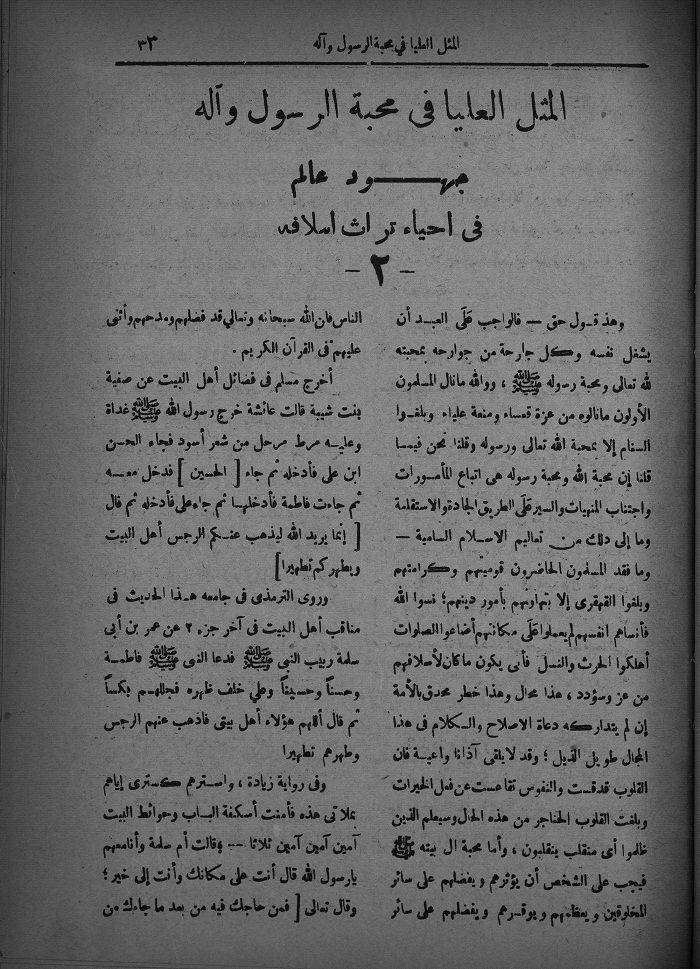 المثل العليا في محبة الرسول وآله
٣٣
المثل العليا فى محبة الرسول وآله
جهود عالم
فى احياء تراث اسلافه
- ٢ -
وهذ قول حق — فالواجب على العبد أن
يشغل نفسه وكل جارحة من جوارحه بمحبته
لله تعالى ومحبة رسوله ﷺ ، ووالله مانال المسلمون
الأولون مانالوه من عزة قعساء ومنعة علياء وبلغوا
السنام إلا بمحبة الله تعالى ورسوله وقلنا نحن فيما
قلنا إن محبة الله ومحبة رسوله هى اتباع المأمورات
واجتناب المنهيات والسير على الطريق الجادة والاستقامة
وما إلى ذلك من تعاليم الاسلام السامية —
وما فقد المسلمون الحاضرون قوميتهم وكرامتهم
وبلغوا القهقرى إلا بتهاونهم بأمور دينهم؛ نسوا الله
فأنساهم انفسهم لم يعملوا على مكانتهم أضاعوا الصلوات
أهلكوا الحرث والنسل فأنى يكون ماكان لأسلافهم
من عز وسؤدد ، هذا محال وهذا خطر محدق بالأمة
إن لم يتداركه دعاة الاصلاح والكلام فى هذا
المجال طويل الذيل ؛ وقد لا يلقى آذانا واعية فان
القلوب قدقست والنفوس تقاعست عن فعل الخيرات
وبلغت القلوب الحناجر من هذه الحال وسيعلم الذين
ظلموا أى منقلب ينقلبون ، وأما محبة ال بيته ﷺ
فيجب على الشخص أن يؤثرهم ويفضلهم على سائر
المخلوقين ويعظمهم ويوقرهم ويفضلهم على سائر
الناس فان الله سبحانه وتعالى قد فضلهم ومدحهم وأثنى
عليهم فى القرآن الكريم .
أخرج مسلم فى فضائل أهل البيت عن صفية
بنت شيبة قالت عائشة خرج رسول الله ﷺ غداة
وعليه مرط مرحل من شعر أسود فجاء الحسن
ابن على فأدخله ثم جاء [ الحسين ] فدخل معه
ثم جاءت فاطمة فأدخلها ثم جاء على فأدخله ثم قال
[ إنما يريد الله ليذهب عنكم الرجس أهل البيت
ويطهركم تطهيرا ]
وروى الترمذى فى جامعه هذا الحديث فى
مناقب أهل البيت فى آخر جزء ٢ عن عمر بن أبى
سلمة ربيب النبى ﷺ فدعا النبى ﷺ فاطمة
وحسناً وحسيناً وعلي خلف ظهره فجللهم بكساً
ثم قال أللهم هؤلاء أهل بيتى فاذهب عنهم الرجس
وطهرهم تطهيرا
وفى رواية زيادة ، واسترهم كسترى إياهم
بملائتى هذه فأمنت أسكفة الباب وحوائط البيت
آمين آمين آمين ثلاثا -- وقالت أم سلمة وأنامعهم
يارسول الله قال أنت على مكانك وأنت إلى خير ؛
وقال تعالى [ فمن حاجك فيه من بعد ما جاءك من